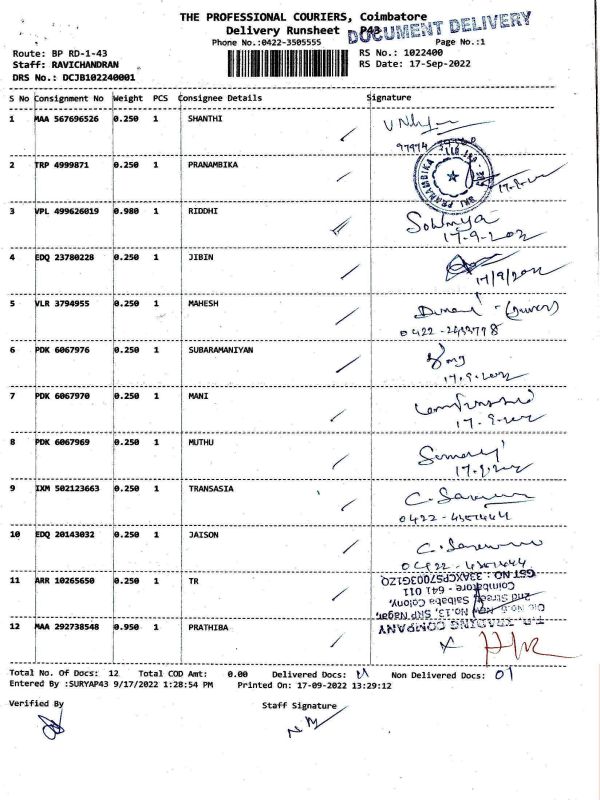 THE PROFESSIONAL COURIERS, Coimbatore
Delivery Runsheet - P43
DOCUMENT DELIVERY
Phone No.:0422-3505555
Page No.:1
Route: BP RD-1-43
RS No.: 1022400
Staff: RAVICHANDRAN
RS Date: 17-Sep-2022
DRS No.: DCJB102240001
S No Consignment No Weight PCS Consignee Details Signature
1 MAA 567696526 0.250 1 SHANTHI
2 TRP 4999871 0.250 1 PRANAMBIKA
SRI PRANAMBIKA
3 VPL 499626019 0.980 1 RIDDHI Sowmya
17-9-2022
4 EDQ 23780228 0.250 1 JIBIN
17/9/2022
5 VLR 3794955 0.250 1 MAHESH
6 PDK 6067976 0.250 1 SUBARAMANIYAN
17.9.2022
7 PDK 6067970 0.250 1 MANI
17.9.2022
8 PDK 6067969 0.250 1 MUTHU
17.9.2022
9 IXM 502123663 0.250 1 TRANSASIA
0422-4351444
10 EDQ 20143032 0.250 1 JAISON
0422-4351444
11 ARR 10265650 0.250 1 TR
T.R. TRADING COMPANY
No.13, SRP Nagar,
2nd Street, Saibaba Colony,
Coimbatore - 641 011
GST NO : 33AXCPS7003G1ZO
12 MAA 292738548 0.950 1 PRATHIBA X
Total No. Of Docs: 12 Total COD Amt: 0.00 Delivered Docs: 11 Non Delivered Docs: 01
Entered By :SURYAP43 9/17/2022 1:28:54 PM Printed On: 17-09-2022 13:29:12
Verified By Staff Signature